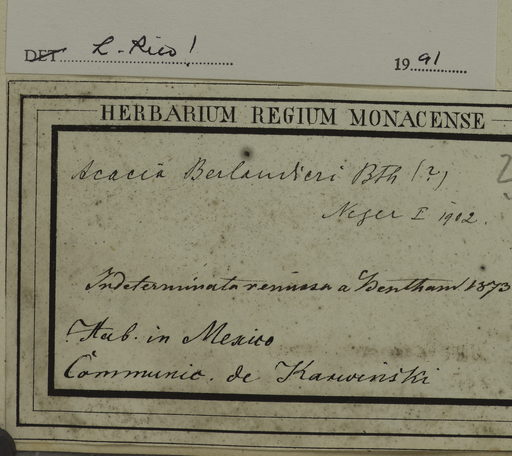 DET. L. Rico! 1991
HERBARIUM REGIUM MONACENSE
Acacia Berlandieri Bth (?)
Neger I 1902.
Indeterminata remissa a Bentham 1873
Hab. in Mexico
Communic. de Karwinski